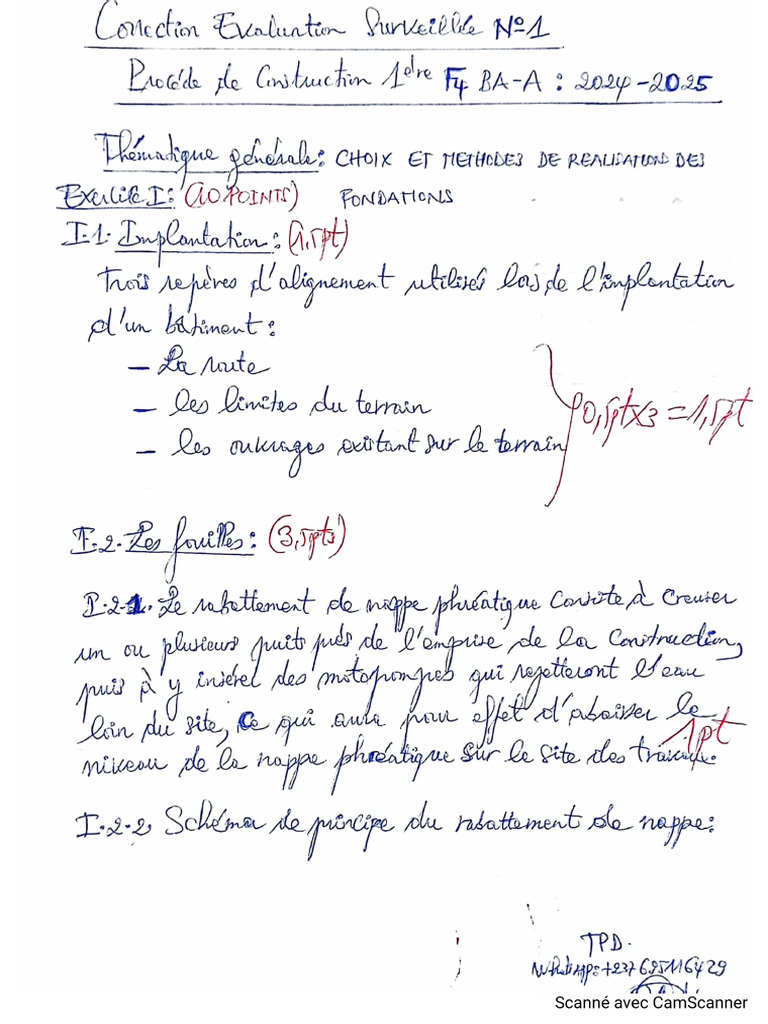 Correction Evaluation Surveillée N°1
Procédé de Construction 1ère F4 BA-A : 2024-2025
Thématique générale : CHOIX ET METHODES DE REALISATION DES
FONDATIONS
Exercice I : (10 POINTS)
I.1. Implantation : (1,5pt)
Trois repères d'alignement utilisés lors de l'implantation
d'un bâtiment :
- La route
- les limites du terrain
- les ouvrages existant sur le terrain
0,5pt×3 = 1,5pt
I.2. Les fouilles : (3,5pts)
I.2.1. Le rabattement de nappe phréatique consiste à creuser
un ou plusieurs puits près de l'emprise de la construction,
puis à y insérer des motopompes qui rejetteront l'eau
loin du site, ce qui aura pour effet d'abaisser le
niveau de la nappe phréatique sur le site des travaux.
1pt
I.2.2. Schéma de principe du rabattement de nappe :
TPD.
WhatsApp : +237 695116429
Scanné avec CamScanner